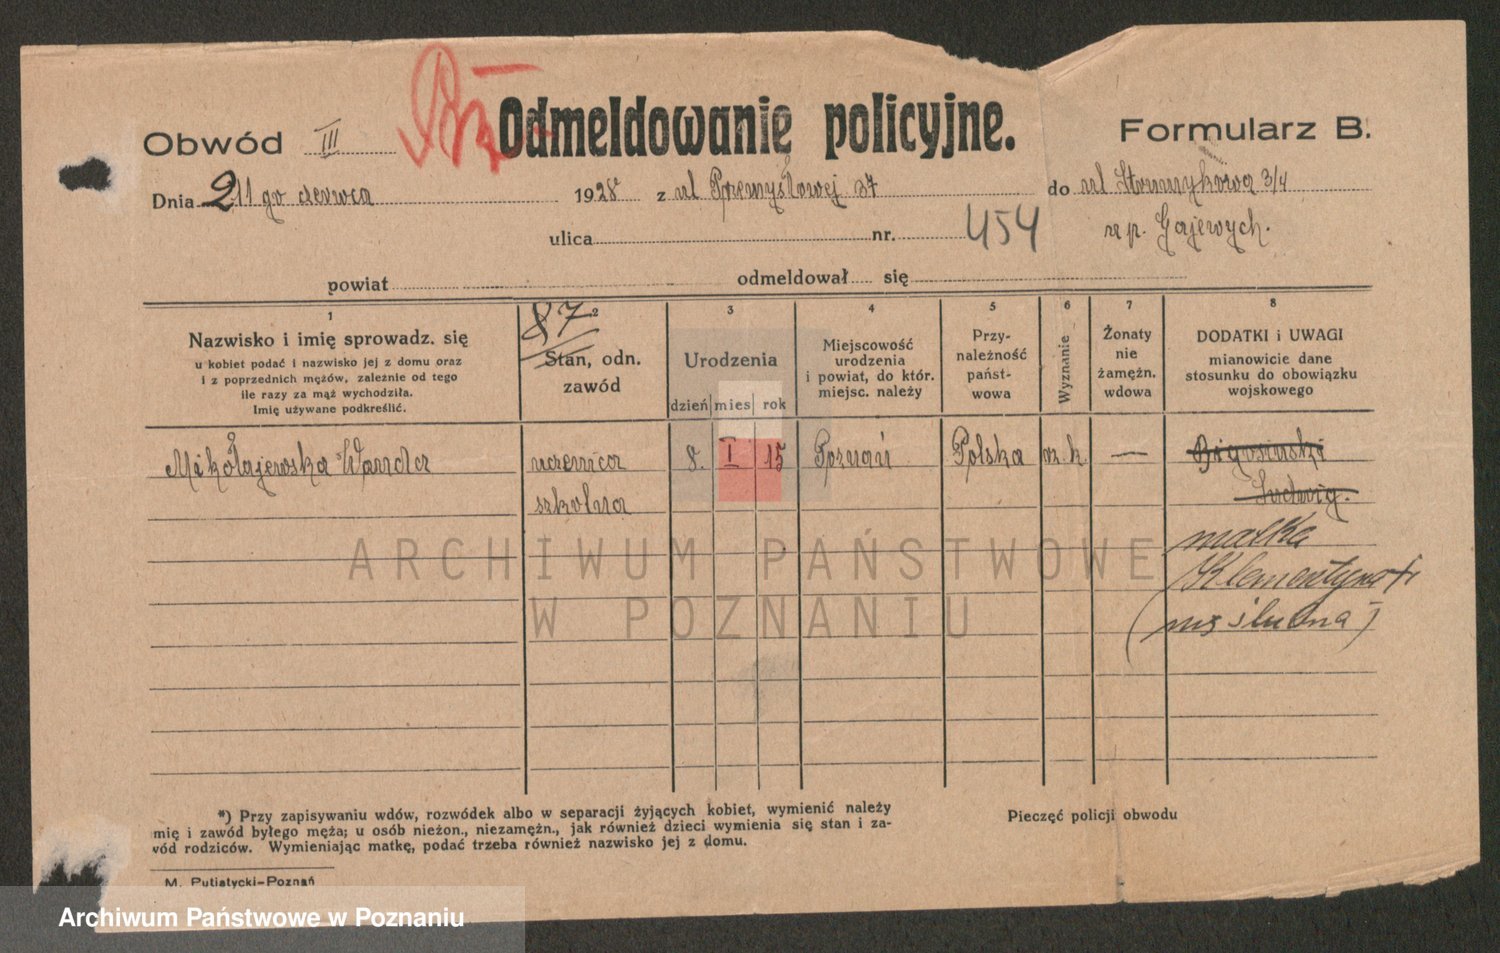 Odmeldowanie policyjne.
Obwód III
Formularz B.
Dnia 211 go czerwca 1928 z ul Przemysłowej 37 do ul Strumykowa 3/4
ulica nr. 454 u p. Gajewych.
powiat odmeldował się
1
Nazwisko i imię sprowadz. się
u kobiet podać i nazwisko jej z domu oraz
i z poprzednich mężów, zależnie od tego
ile razy za mąż wychodziła.
Imię używane podkreślić.
87
2
Stan, odn.
zawód
3
Urodzenia
dzień mies rok
4
Miejscowość
urodzenia
i powiat, do któr.
miejsc. należy
5
Przy-
należność
państ-
wowa
6
Wyznanie
7
Żonaty
nie
żamężn.
wdowa
8
DODATKI i UWAGI
mianowicie dane
stosunku do obowiązku
wojskowego
Mikołajewska Wanda uczenica 8. I 15 Poznań Polska rz. k. —
szkolna Ludwig.
matka
Klementyna
ARCHIWUM PAŃSTWOWE
W POZNANIU
*) Przy zapisywaniu wdów, rozwódek albo w separacji żyjących kobiet, wymienić należy
mię i zawód byłego męża; u osób nieżon., niezamężn., jak również dzieci wymienia się stan i za-
vód rodziców. Wymieniając matkę, podać trzeba również nazwisko jej z domu.
Pieczęć policji obwodu
M. Putiatycki-Poznań
Archiwum Państwowe w Poznaniu